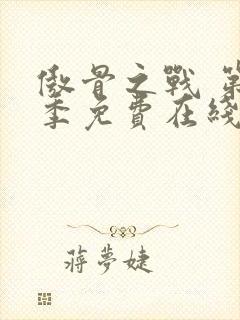 傲骨之戰 第
季免費在綫
蔣夢婕